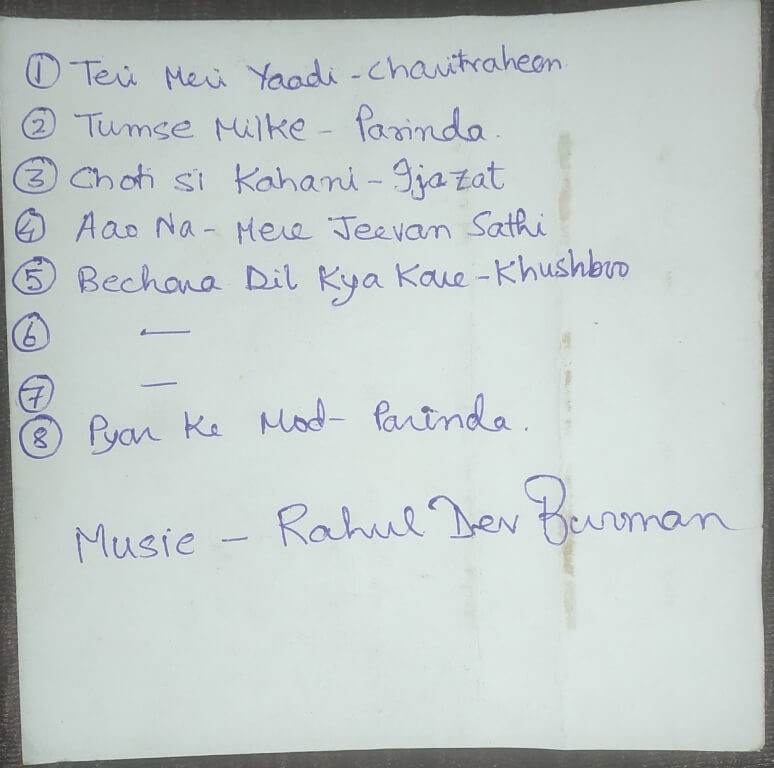 ① Teri Meri Yaadi - Charitraheen
② Tumse Milke - Parinda.
③ Choti si Kahani - Ijazat
④ Aao Na - Mere Jeevan Sathi
⑤ Bechara Dil Kya Kare - Khushboo
⑥ —
⑦ —
⑧ Pyar Ke Mod - Parinda.
Music - Rahul Dev Burman